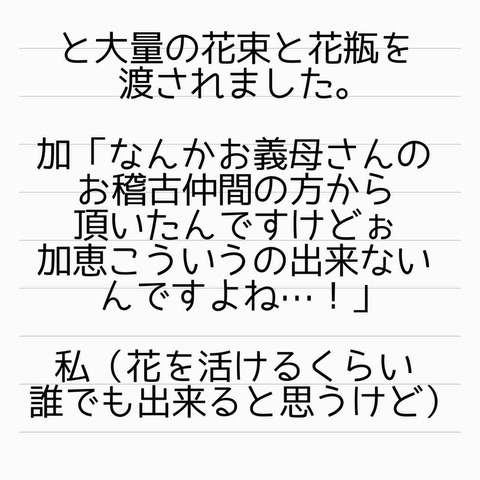 と大量の花束と花瓶を
渡されました。
加「なんかお義母さんの
お稽古仲間の方から
頂いたんですけどぉ
加恵こういうの出来ない
んですよね…！」
私（花を活けるくらい
誰でも出来ると思うけど）